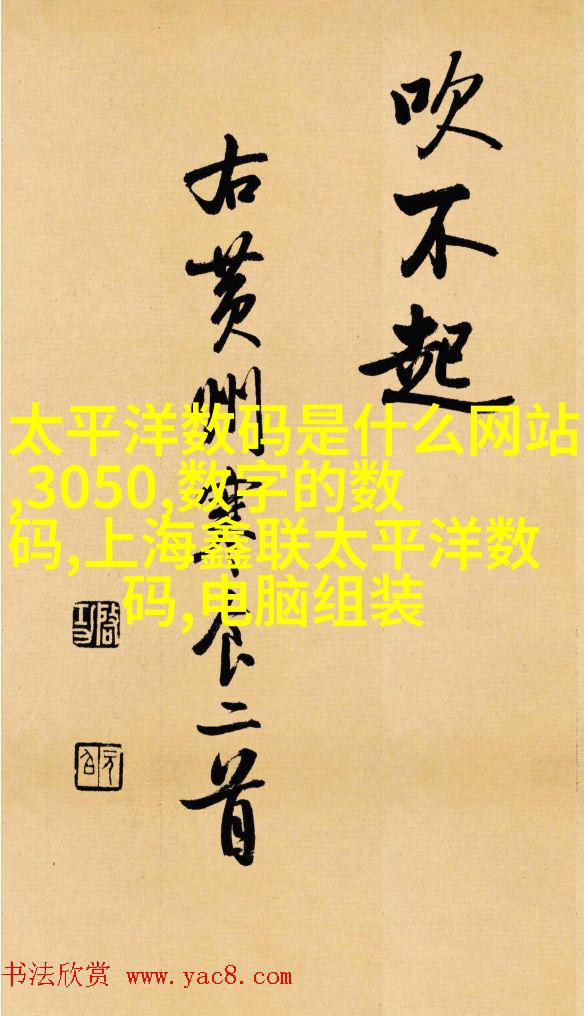 吹不起
右黄州寒食二首
太平洋数码是什么网站
,3050,数字的数
码,上海鑫联太平洋数
码,电脑组装
启功
元白
书法欣赏 www.yac8.com